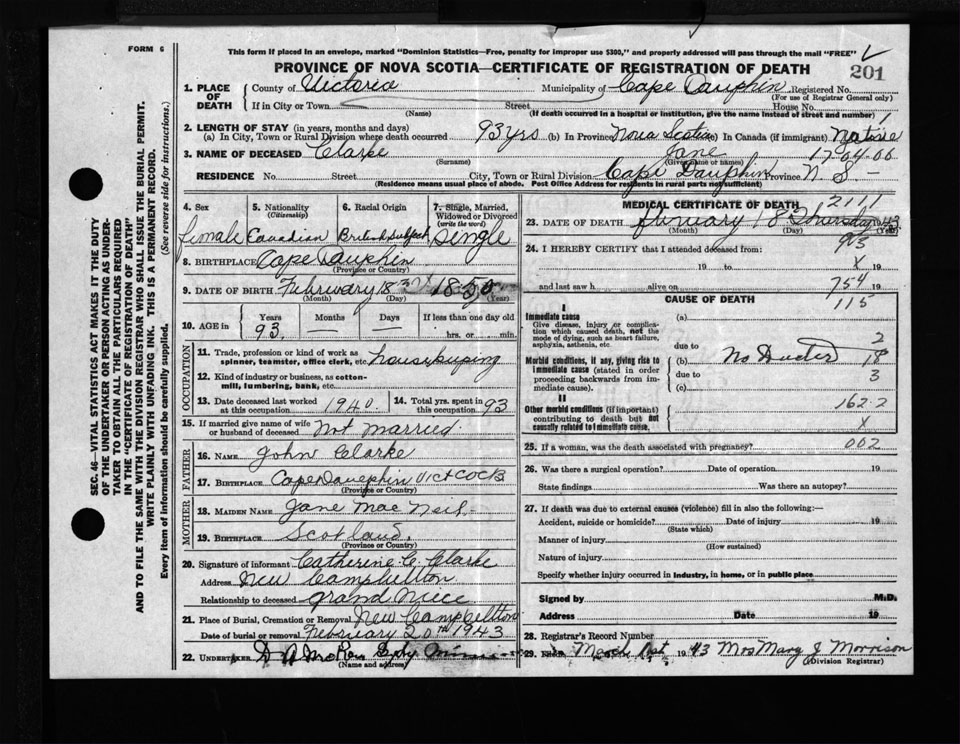 FORM 6
This form if placed in an envelope, marked "Dominion Statistics—Free, penalty for improper use $300," and properly addressed will pass through the mail "FREE"
PROVINCE OF NOVA SCOTIA—CERTIFICATE OF REGISTRATION OF DEATH
201
1. PLACE OF DEATH
County of Victoria Municipality of Cape Dauphin Registered No.
(For use of Registrar General only)
If in City or Town Street House No.
(Name) (If death occurred in a hospital or institution, give the name instead of street and number)
2. LENGTH OF STAY (in years, months and days)
(a) In City, Town or Rural Division where death occurred 93 yrs (b) In Province Nova Scotia (c) In Canada (if immigrant) Native
3. NAME OF DECEASED Clarke Jane 17-04-00
(Surname) (Given name or names)
RESIDENCE No. Street City, Town or Rural Division Cape Dauphin Province N. S.
(Residence means usual place of abode. Post Office Address for residents in rural parts not sufficient)
4. Sex
female
5. Nationality
(Citizenship)
Canadian
6. Racial Origin
7. Single, Married, Widowed or Divorced
(write the word)
Single
8. BIRTHPLACE Cape Dauphin
(Province or Country)
9. DATE OF BIRTH February 18 1850
(Month) (Day) (Year)
10. AGE in
Years Months Days If less than one day old
93 — — hrs. or min.
OCCUPATION
11. Trade, profession or kind of work as spinner, teamster, office clerk, etc.
12. Kind of industry or business, as cotton-mill, lumbering, bank, etc.
13. Date deceased last worked at this occupation 1940
14. Total yrs. spent in this occupation 93
15. If married give name of wife or husband of deceased Not Married
FATHER
16. NAME John Clarke
17. BIRTHPLACE Cape Dauephin Vict Co CB
(Province or Country)
MOTHER
18. MAIDEN NAME Jane Mac Neil
19. BIRTHPLACE Scotland
(Province or Country)
20. Signature of informant Catherine C. Clarke
Address New Campbellton
Relationship to deceased grand niece
21. Place of Burial, Cremation or Removal New Campbellton
Date of burial or removal February 20th 1943
22. UNDERTAKER
(Name and address)
MEDICAL CERTIFICATE OF DEATH
2111
23. DATE OF DEATH February 18 Thursday 43
(Month) (Day) (Year)
24. I HEREBY CERTIFY that I attended deceased from: 93
19 to X 19
and last saw h alive on 754 19
CAUSE OF DEATH 115
I
Immediate cause (a)
Give disease, injury or complication which caused death, not the mode of dying, such as heart failure, asphyxia, asthenia, etc.
due to 2
Morbid conditions, if any, giving rise to immediate cause (stated in order proceeding backwards from immediate cause).
(b) No Docter 18
due to 3
(c)
II
Other morbid conditions (if important) contributing to death but not causally related to immediate cause.
162.2
X
25. If a woman, was the death associated with pregnancy? 002
26. Was there a surgical operation? Date of operation 19
State findings Was there an autopsy?
27. If death was due to external causes (violence) fill in also the following:—
Accident, suicide or homicide? Date of injury 19
(State which)
Manner of injury
(How sustained)
Nature of injury
Specify whether injury occurred in industry, in home, or in public place
Signed by M.D.
Address Date 19
28. Registrar's Record Number
29. March 1st 1943 Mrs Mary J Morrison
(Division Registrar)
SEC. 46—VITAL STATISTICS ACT MAKES IT THE DUTY
OF THE UNDERTAKER OR PERSON ACTING AS UNDERTAKER TO OBTAIN ALL THE PARTICULARS REQUIRED
IN THE "CERTIFICATE OF REGISTRATION OF DEATH"
AND TO FILE THE SAME WITH THE DIVISION REGISTRAR WHO SHALL ISSUE THE BURIAL PERMIT.
WRITE PLAINLY WITH UNFADING INK. THIS IS A PERMANENT RECORD.
Every item of information should be carefully supplied. (See reverse side for instructions.)